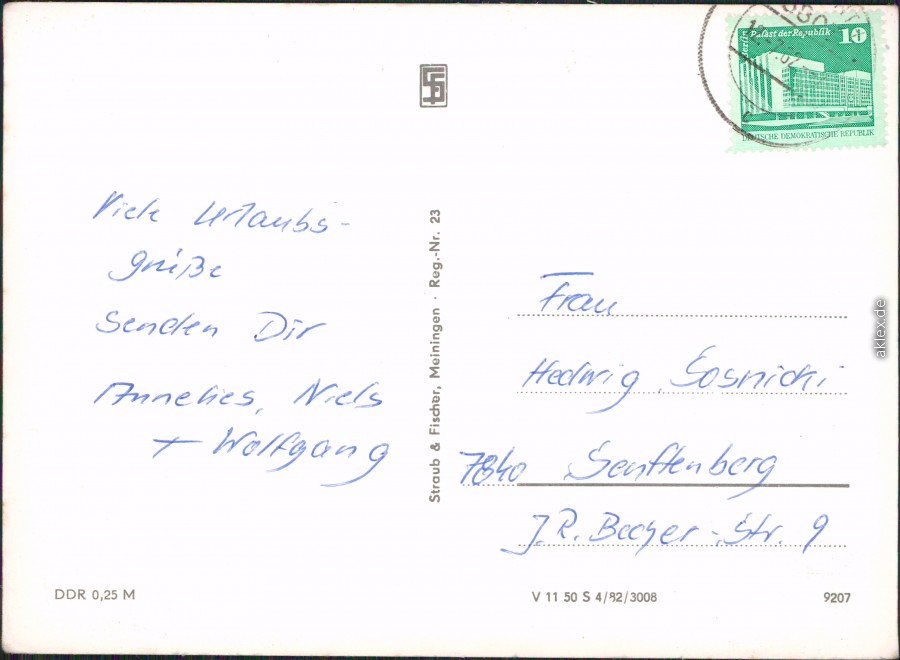 Berlin
Palast der Republik 10
DEUTSCHE DEMOKRATISCHE REPUBLIK
Viele Urlaubs-
grüße
Senden Dir
Annelies, Niels
+ Wolfgang
Straub & Fischer, Meiningen · Reg.-Nr. 23
Frau
Hedwig Sosnicki
7840 Senftenberg
J.R. Becher-Str. 9
DDR 0,25 M
V 11 50 S 4/82/3008
9207
aklex.de